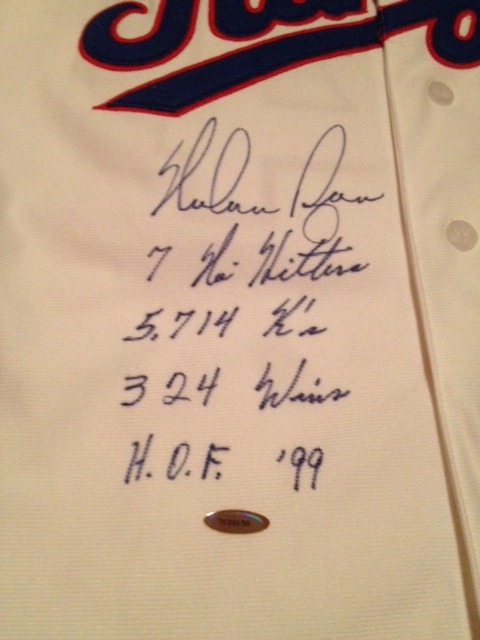 Nolan Ryan
7 No Hitters
5,714 K's
324 Wins
H.O.F. '99